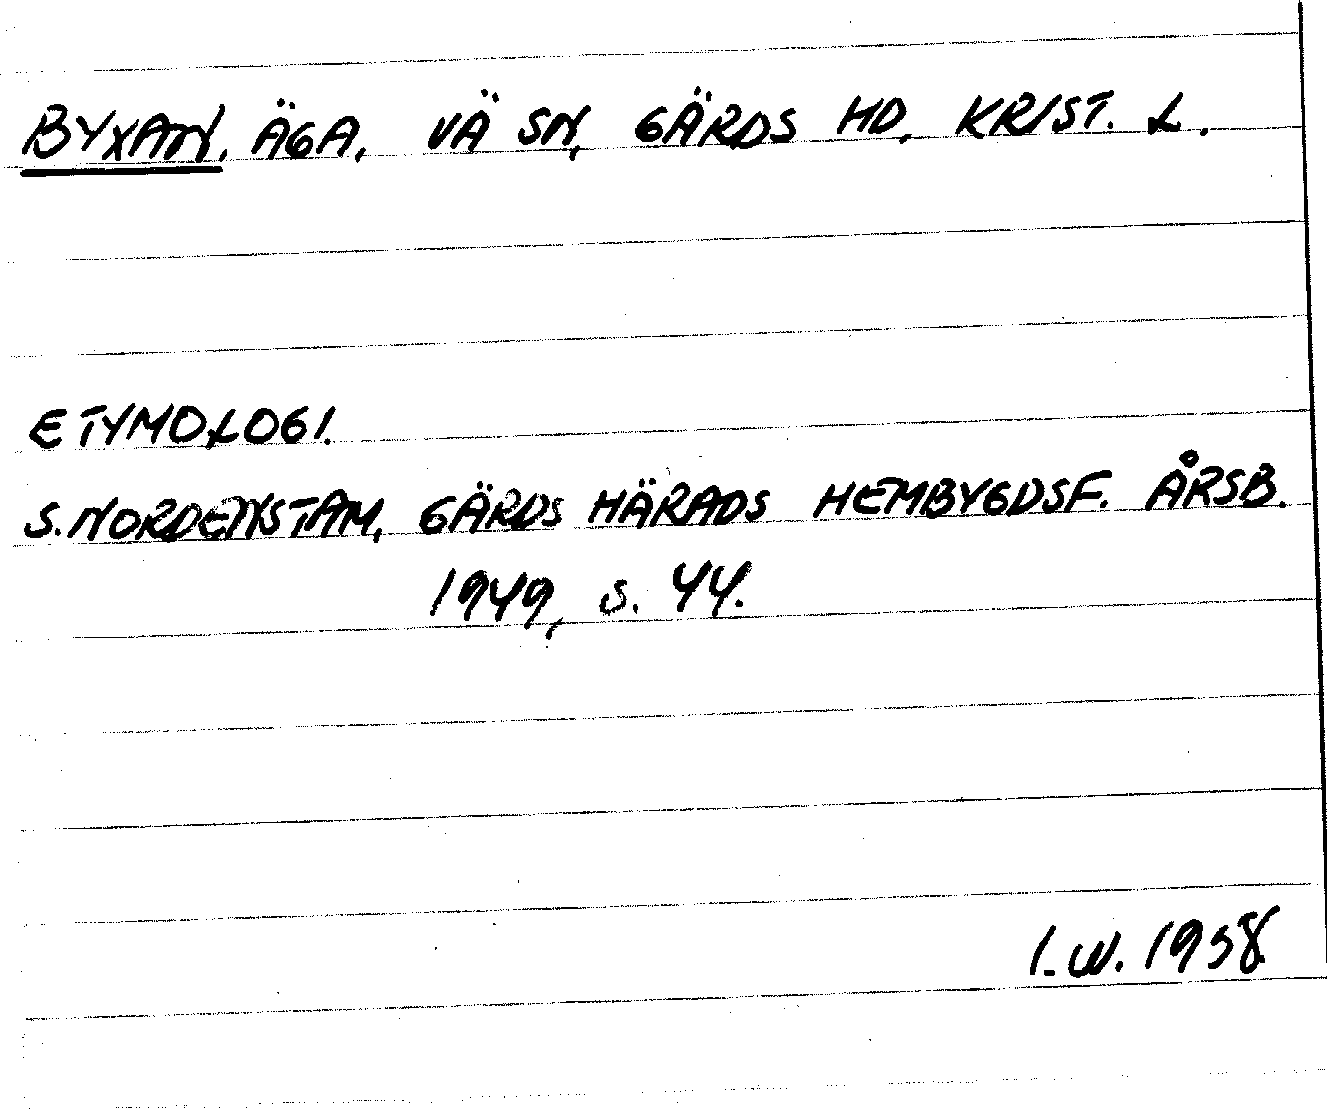 BYXAN. ÄGA. VÄ SN, GÄRDS HD. KRIST. L.
ETYMOLOGI.
S. NORDENSTAM, GÄRDS HÄRADS HEMBYGDSF. ÅRSB.
1949, S. 44.
I.W. 1958